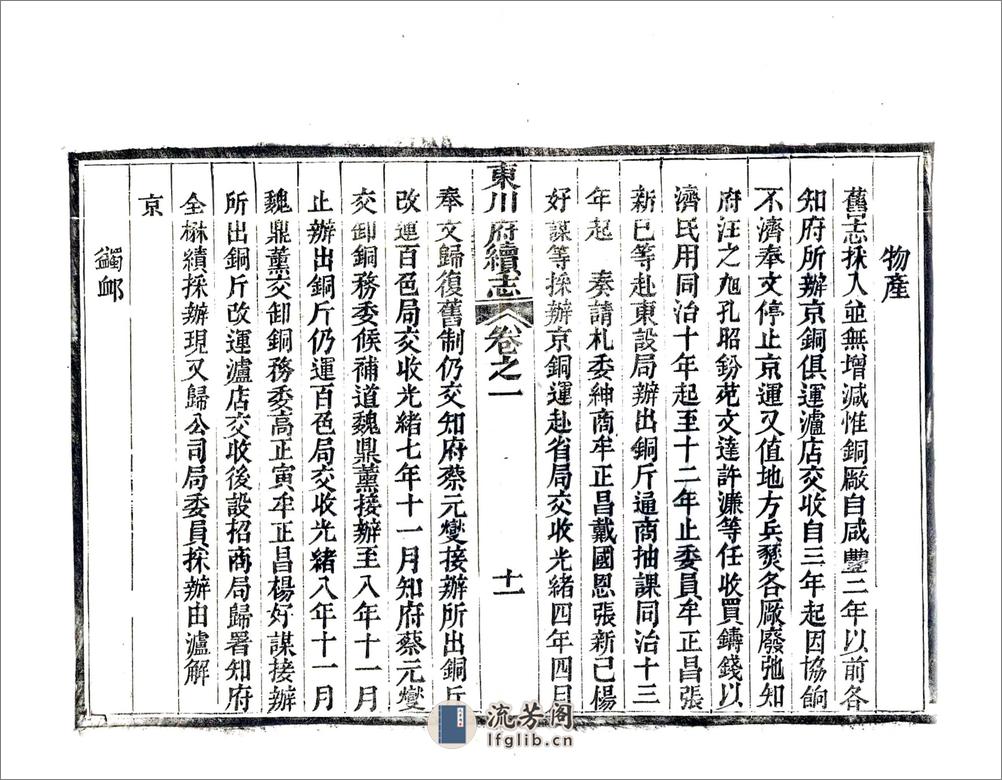 物產
舊志採入並無增減惟銅厰自咸豐二年以前各
知府所辦京銅俱運瀘店交收自三年起因協餉
不濟奉文停止京運又值地方兵燹各厰廢弛知
府汪之旭孔昭鈖苑文達許濂等任收買鑄錢以
濟民用同治十年起至十二年止委員牟正昌張
新已等赴東設局辦出銅斤通商抽課同治十三
年起　奏請札委紳商牟正昌戴國恩張新已楊
好謀等採辦京銅運赴省局交收光緒四年四月
東川府續志　卷之一　十一
奉文歸復舊制仍交知府蔡元燮接辦所出銅斤
改運百色局交收光緒七年十一月知府蔡元燮
交卸銅務委候補道魏鼎薰接辦至八年十一月
止辦出銅斤仍運百色局交收光緒八年十一月
魏鼎薰交卸銅務委高正寅牟正昌楊好謀接辦
所出銅斤改運瀘店交收後設招商局歸署知府
全楙績採辦現又歸公司局委員採辦由瀘解
京
蠲卹
流芳阁
lfglib.cn